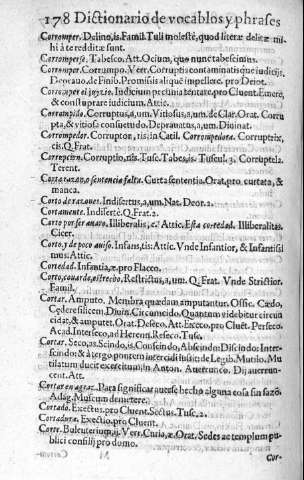 178 Dictionario de vocablos y phrases
Corromper. Delino, is. Famil. Tuli molestè, quod literæ delitæ mi-
hi à te redditæ sunt.
Corromperse. Tabesco. Att. Ocium, quo nunc tabescimus.
Corromper. Corrumpo. Verr. Corruptis contaminatisque iudicijs.
Deprauo, de Finib. Promissis aliquē impellere, pro Deiot.
Corromper el juyzio. Iudicium pecunia tentare, pro Cluent. Emere,
& constuprare iudicium, Attic.
Corrompido. Corruptus, a, um. Vitiosus, a, um, de Clar. Orat. Corru
pta, & vitiosa consuetudo. Deprauatus, a, um, Diuinat.
Corrompedor. Corruptor, ris, in Catil. Corrompedora. Corruptrix,
cis. Q. Frat.
Corrupcion. Corruptio, nis. Tusc. Tabes, is. Tuscul. 3. Corruptela.
Terent.
Corta razon, o sentencia falta. Curta sententia. Orat. pro curtata, &
manca.
Corto de razones. Indisertus, a, um. Nat. Deor. 2.
Cortamente. Indisertè. Q. Frat. 2.
Corto por ser auaro. Illiberalis, è. Attic. Esta cortedad. Illiberalitas.
Cicer.
Corto, y de poco auiso. Infans, tis: Attic. Vnde Infantior, & Infantissi
mus. Attic.
Cortedad. Infantia, æ. pro Flacco.
Corto, couarde, estrecho. Restrictus, a, um. Q. Frat. Vnde Strictior.
Famil.
Cortar. Amputo. Membra quædam amputantur. Offic. Cædo,
Cędere silicem. Diuin. Circumcido. Quantum videbitur circun
cidat, & amputet. Orat. Deseco. Att. Execo. pro Cluēt. Perseco.
Ac ad. Interseco, ad Herenn. Reseco. Tusc.
Cortar. Seco, as. Scindo, is. Conscindo, Abscindo: Discindo. Inter-
scindo: & à tergo pontem intercidi iussit: de Legib. Mutilo, Mu
tilatum ducit exercitum, in Anton. Auerrunco. Dij auerrun-
cent. Att.
Cortar en agraz. Para significar que se hecho alguna cosa sin sazō.
Adag. Muscum demetere.
Cortado. Exectus. pro Cluent. Sectus. Tusc. 2.
Cortadura. Exectio, pro Cluent.
Corte. Buleuterium, ij. Verr. Curia, æ. Orat. Sedes ac templum pu-
blici consilij pro domo.
M
Cor-